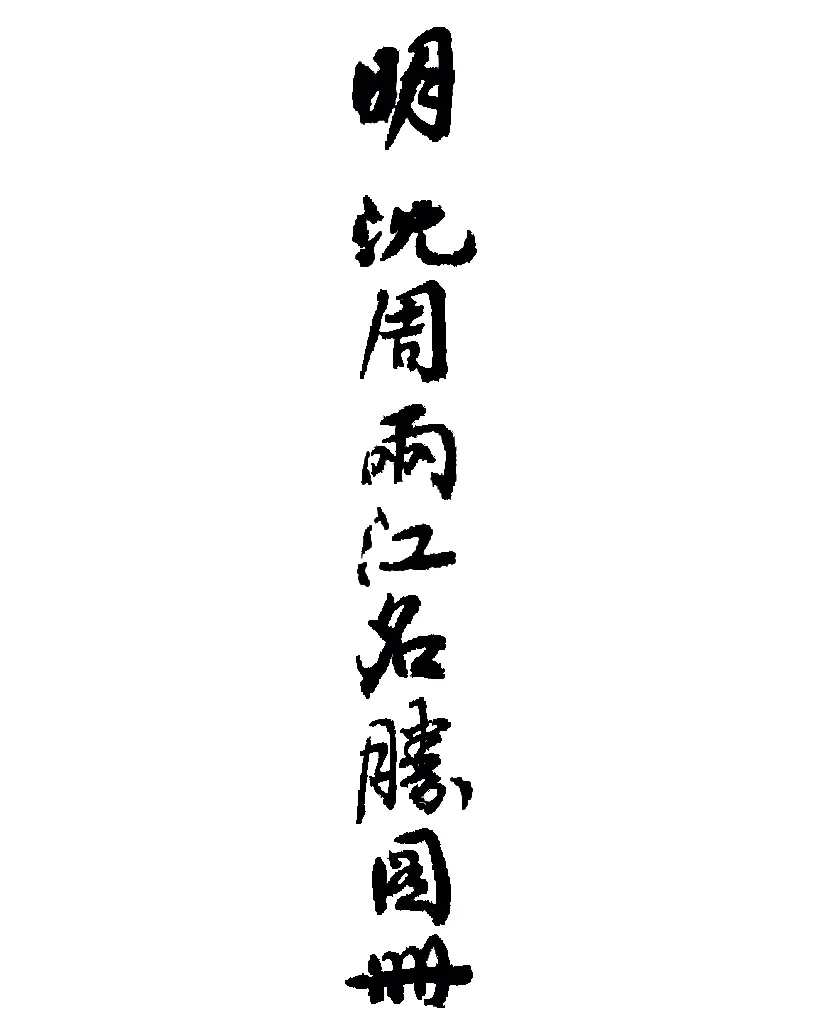 明 沈周兩江名勝图冊